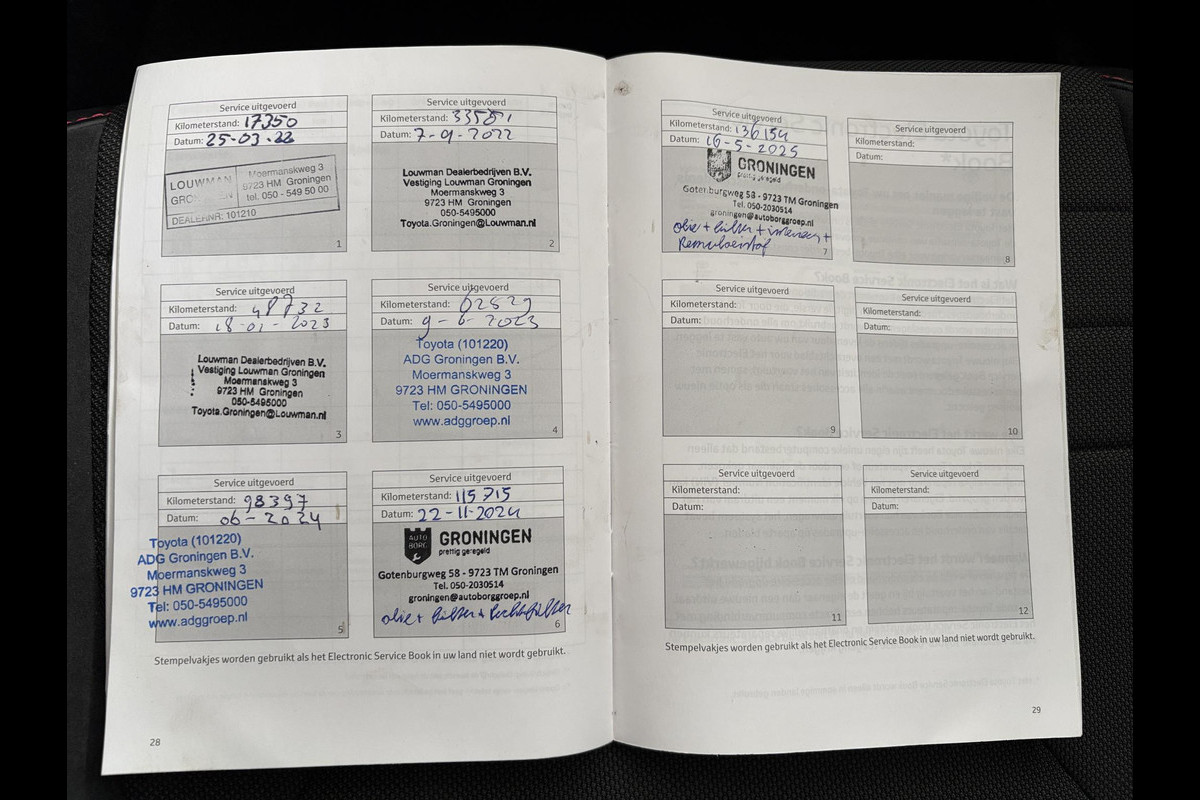 Service uitgevoerd
Kilometerstand: 17350
Datum: 25-03-22
LOUWMAN
GRONINGEN
Moermanskweg 3
9723 HM Groningen
tel. 050 - 549 50 00
DEALERNR: 101210
1
Service uitgevoerd
Kilometerstand: 33581
Datum: 7-9-2022
Louwman Dealerbedrijven B.V.
Vestiging Louwman Groningen
Moermanskweg 3
9723 HM Groningen
050-5495000
Toyota.Groningen@Louwman.nl
2
Service uitgevoerd
Kilometerstand: 48732
Datum: 18-01-2023
Louwman Dealerbedrijven B.V.
Vestiging Louwman Groningen
Moermanskweg 3
9723 HM Groningen
050-5495000
Toyota.Groningen@Louwman.nl
3
Service uitgevoerd
Kilometerstand: 62529
Datum: 9-6-2023
Toyota (101220)
ADG Groningen B.V.
Moermanskweg 3
9723 HM GRONINGEN
Tel: 050-5495000
www.adggroep.nl
4
Service uitgevoerd
Kilometerstand: 98397
Datum: 06-2024
Toyota (101220)
ADG Groningen B.V.
Moermanskweg 3
9723 HM GRONINGEN
Tel: 050-5495000
www.adggroep.nl
5
Service uitgevoerd
Kilometerstand: 115715
Datum: 22-11-2024
AUTO
BORG
GRONINGEN
prettig geregeld
Gotenburgweg 58 - 9723 TM Groningen
Tel. 050-2030514
groningen@autoborggroep.nl
olie + filter + luchtfilter
6
Stempelvakjes worden gebruikt als het Electronic Service Book in uw land niet wordt gebruikt.
28
Service uitgevoerd
Kilometerstand: 136154
Datum: 16-5-2025
GRONINGEN
prettig geregeld
Gotenburgweg 58 - 9723 TM Groningen
Tel. 050-2030514
groningen@autoborggroep.nl
olie + filter + interieur +
Remvloeistof
7
Service uitgevoerd
Kilometerstand:
Datum:
8
Service uitgevoerd
Kilometerstand:
Datum:
9
Service uitgevoerd
Kilometerstand:
Datum:
10
Service uitgevoerd
Kilometerstand:
Datum:
11
Service uitgevoerd
Kilometerstand:
Datum:
12
Stempelvakjes worden gebruikt als het Electronic Service Book in uw land niet wordt gebruikt.
29